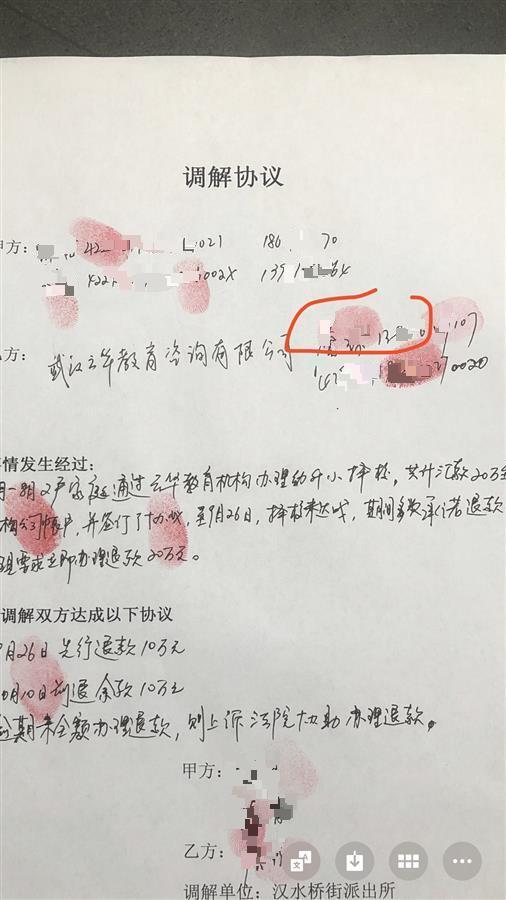 调解协议
甲方： 42 1021 186 70
422 002X 139
方： 武汉云华教育咨询有限公司 107
42 0020
情发生经过：
月一8月2户家庭通过云华教育机构办理幼升小择校，共计汇款20万
构公司账户，并签订了协议，至9月26日，择校未达成，期间多次承诺退款
要求立即办理退款20万元。
调解双方达成以下协议
月26日先行退款10万元
0月10日前退余款10万元
逾期未全额办理退款，则上诉法院协助办理退款。
甲方：
乙方：
调解单位：汉水桥街派出所